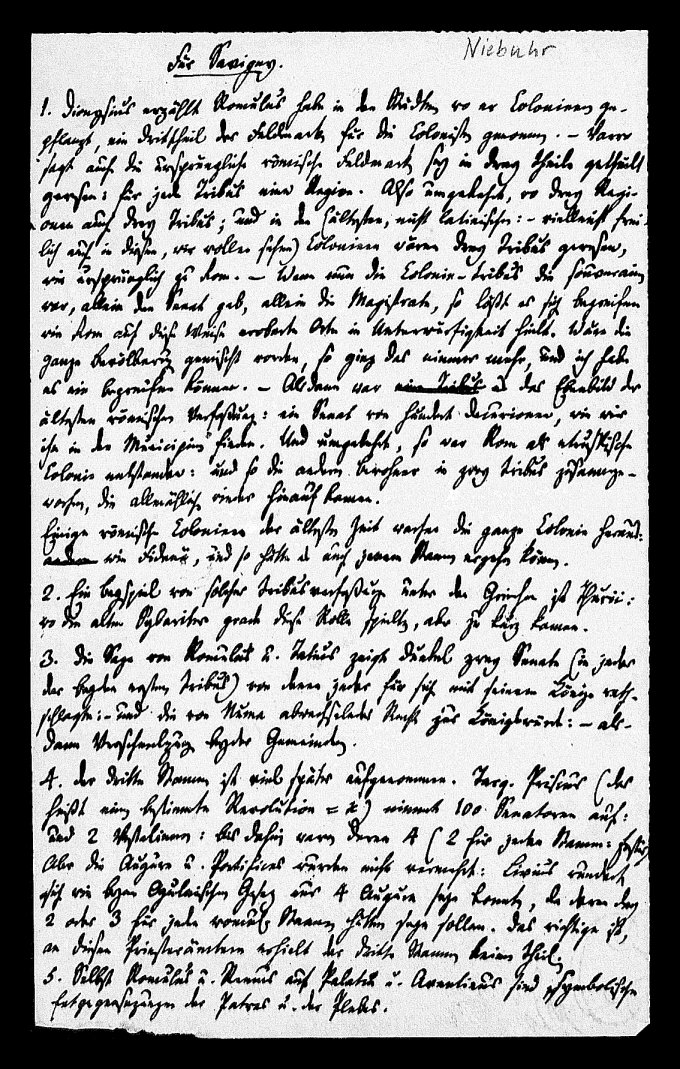 Niebuhr
Für Savigny.
1. Dionysius erzählt Romulus habe in den Städten wo er Colonieen ge-
pflanzt, ein Drittheil der Feldmark für die Colonisten genommen. – Varro
sagt auch die ursprüngliche römische Feldmark sey in drey Theile getheilt
gewesen: für jede Tribus eine Region. Also umgekehrt, wo drey Regi-
onen auch drey Tribus; und in den (ältesten, nicht latinischen: – vielleicht frei-
lich auch in diesen, wir wollen sehen) Colonieen wären drey Tribus gewesen,
wie ursprünglich zu Rom. – Wenn nun die Colonie-Tribus die souveraine
war, allein den Senat gab, allein die Magistrate, so läßt es sich begreifen
wie Rom auf diese Weise eroberte Orte in Unterwürfigkeit hielt. Wäre die
ganze Bevölkerung gemischt worden, so ging das nimmermehr, und ich habe
es nie begreifen können. – Alsdann war eine Tribus das Ebenbild der
ältesten römischen Verfaßung: ein Senat von hundert Decurionen, wie wir
ihn in den Municipien finden. Und umgekehrt, so war Rom als etruskische
Colonie entstanden: und so die andern Bewohner in zwey Tribus zusammenge-
worfen, die allmählich wieder hinauf kamen.
Einige römische Colonieen der ältesten Zeit warfen die ganze Colonie heraus:
wie Fidenä, und so hätte es auch jenem Stamm ergehen können.
2. Ein Beyspiel von solcher Tribusverfaßung unter den Griechen ist Thurii:
wo die alten Sybariter grade diese Rolle spielten, aber zu kurz kamen.
3. Die Sage von Romulus u. Tatius zeigt dunkel zwey Senate (in jeder
der beyden ersten Tribus) von denen jeder für sich mit seinem Könige rath-
schlagte: – und die von Numa abwechselndes Recht zur Königswürde: – als-
dann Verschmelzung beyder Gemeinden.
4. Der dritte Stamm ist viel später aufgenommen. Tarq. Priscus (das
heißt eine bestimmte Revolution = x) nimmt 100 Senatoren auf:
und 2 Vestalinnen: bis dahin waren deren 4 (2 für jeden Stamm:
Aber die Augurn u. Pontifices wurden nicht vermehrt: Livius wundert
sich wie beym Ogulnischen Gesetz nur 4 Augurn seyn konnten, da deren doch
2 oder 3 für jeden romul. Stamm hätten seyn sollen. Das richtige ist,
an diesen Priesterämtern erhielt der dritte Stamm keinen Theil.
5. Selbst Romulus u. Remus auf Palatin u. Aventinus sind symbolische
Entgegensezungen der Patres u. der Plebes.